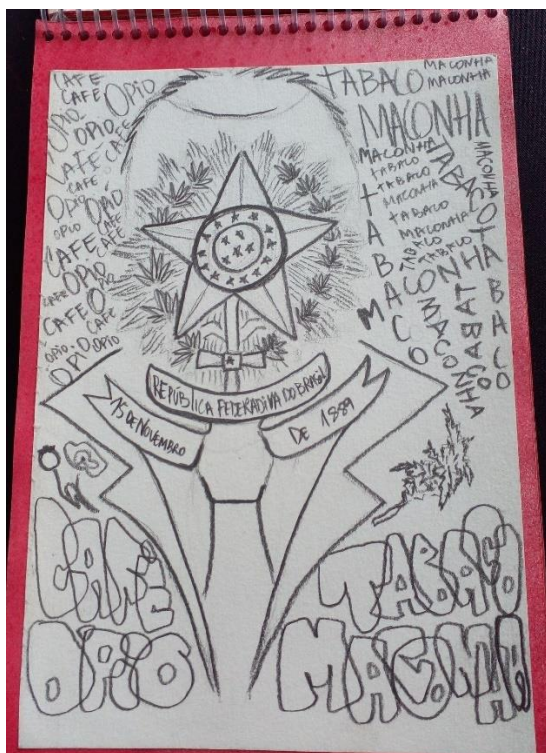 CAFE
CAFE
OPIO
OPIO
OPIO
CAFE
CAFE
CAFE
OPIO
OPIO
CAFE
OPIO
CAFE
CAFE
CAFE
OPIO
CAFE
CAFE
OPIO
CAFE
OPIO
OPIO
TABACO
MACONHA
MACONHA
MACONHA
MACONHA
TABACO
TABACO
MACONHA
TABACO
MACONHA
TABACO
MACONHA
TABACO
TABACO
MACONHA
TABACO
MACONHA
TABACO
MACONHA
REPÚBLICA FEDERADIVA DO BRASIL
15 DE NOVEMBRO
DE 1889
CAFE
TABACO
OPIO
MACONHA